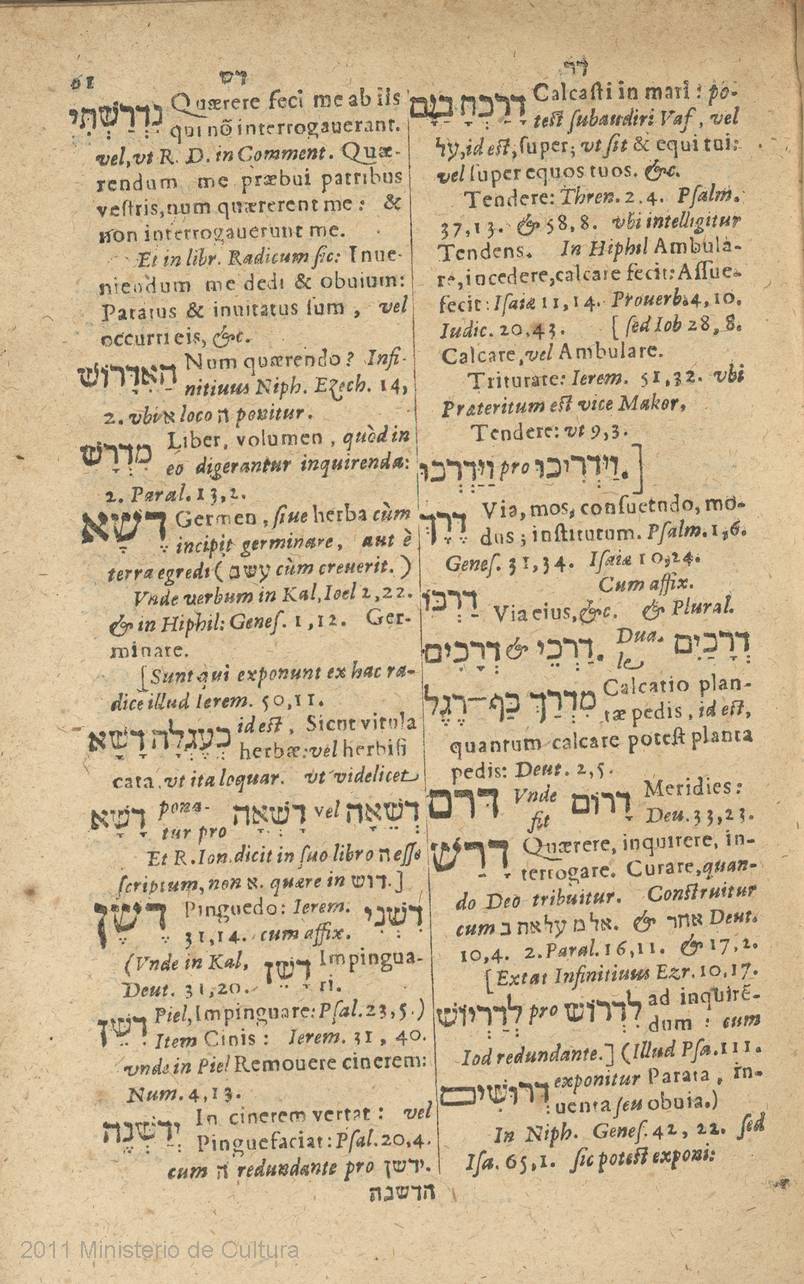 דר
דרכת בים Calcasti in mari: po-
test subaudiri Vaf, vel
על, id est, super; vt sit & equi tui:
vel super equos tuos. &c.
Tendere: Thren. 2.4. Psalm.
37,13. & 58,8. vbi intelligitur
Tendens. In Hiphil Ambula-
re, incedere, calcare fecit: Assue-
fecit: Isaiæ 11,14. Prouerb. 4,10.
Iudic. 20.43. [sed Iob 28,8.
Calcare, vel Ambulare.
Triturare: Ierem. 51,32. vbi
Præteritum est vice Makor,
Tendere: vt 9,3.
וַיַּדְרְכוּ pro וַיַּדְרִיכוּ.]
דֶּרֶךְ Via, mos, consuetudo, mo-
dus; institutum. Psalm. 1,6.
Genes. 31,34. Isaiæ 10,24.
Cum affix.
דַּרְכּוֹ Via eius, &c. & Plural.
דְּרָכִים & דַּרְכֵי. Dua-
le דְּרָכַיִם
מִדְרַךְ כַּף־רֶגֶל Calcatio plan-
tæ pedis, id est,
quantum calcare potest planta
pedis: Deut. 2,5.
דרם Vnde
fit דָּרוֹם Meridies:
Deu. 33,23.
דָּרַשׁ Quærere, inquirere, in-
terrogare. Curare, quan-
do Deo tribuitur. Construitur
cum אל מ על את ב. & אחר Deut.
10,4. 2. Paral. 16,11. & 17,2.
[Extat Infinitiuus Ezr. 10,17.
לְדַרְיוֹשׁ pro לִדְרוֹשׁ ad inquirē-
dum: cum
Iod redundante.] (Illud Psa. 111.
דרושים exponitur Parata, in-
uenta seu obuia.)
In Niph. Genes. 42, 22. sed
Isa. 65,1. sic potest exponi:
61
דש
נִדְרַשְׁתִּי Quærere feci me ab iis
qui nō interrogauerant.
vel, vt R. D. in Comment. Quæ-
rendum me præbui patribus
vestris, num quærerent me: &
non interrogauerunt me.
Et in libr. Radicum sic: Inue-
niendum me dedi & obuium:
Paratus & inuitatus sum, vel
occurri eis, &c.
הַאִדָּרוֹשׁ Num quærendo? Infi-
nitiuus Niph. Ezech. 14,
2. vbi א loco ה ponitur.
מִדְרָשׁ Liber, volumen, quòd in
eo digerantur inquirenda:
2. Paral. 13,2.
דֶּשֶׁא Germen, siue herba cùm
incipit germinare, aut è
terra egredi (עשב cùm creuerit.)
Vnde verbum in Kal, Ioel 2,22.
& in Hiphil: Genes. 1,12. Ger-
minare.
[Sunt qui exponunt ex hac ra-
dice illud Ierem. 50,11.
כְּעֶגְלָה דָשָׁא id est, Sicut vitula
herbæ: vel herbisi
cata, vt ita loquar. vt videlicet
דָּשָׁא pona-
tur pro דשאה vel דשאה
Et R. Ion. dicit in suo libro ה esse
scriptum, non א. quære in דוש.]
דֶּשֶׁן Pinguedo: Ierem.
31,14. cum affix. דִּשְׁנִי
(Vnde in Kal, דשן Impingua-
Deut. 31,20. ri.
דִּשֵּׁן Piel, Impinguare: Psal. 23,5.)
Item Cinis: Ierem. 31, 40.
vnde in Piel Remouere cinerem:
Num. 4,13.
יְדַשְּׁנֶה In cinerem vertat: vel
Pinguefaciat: Psal. 20,4.
cum ה redundante pro ידשן.
הדשנה
2011 Ministerio de Cultura